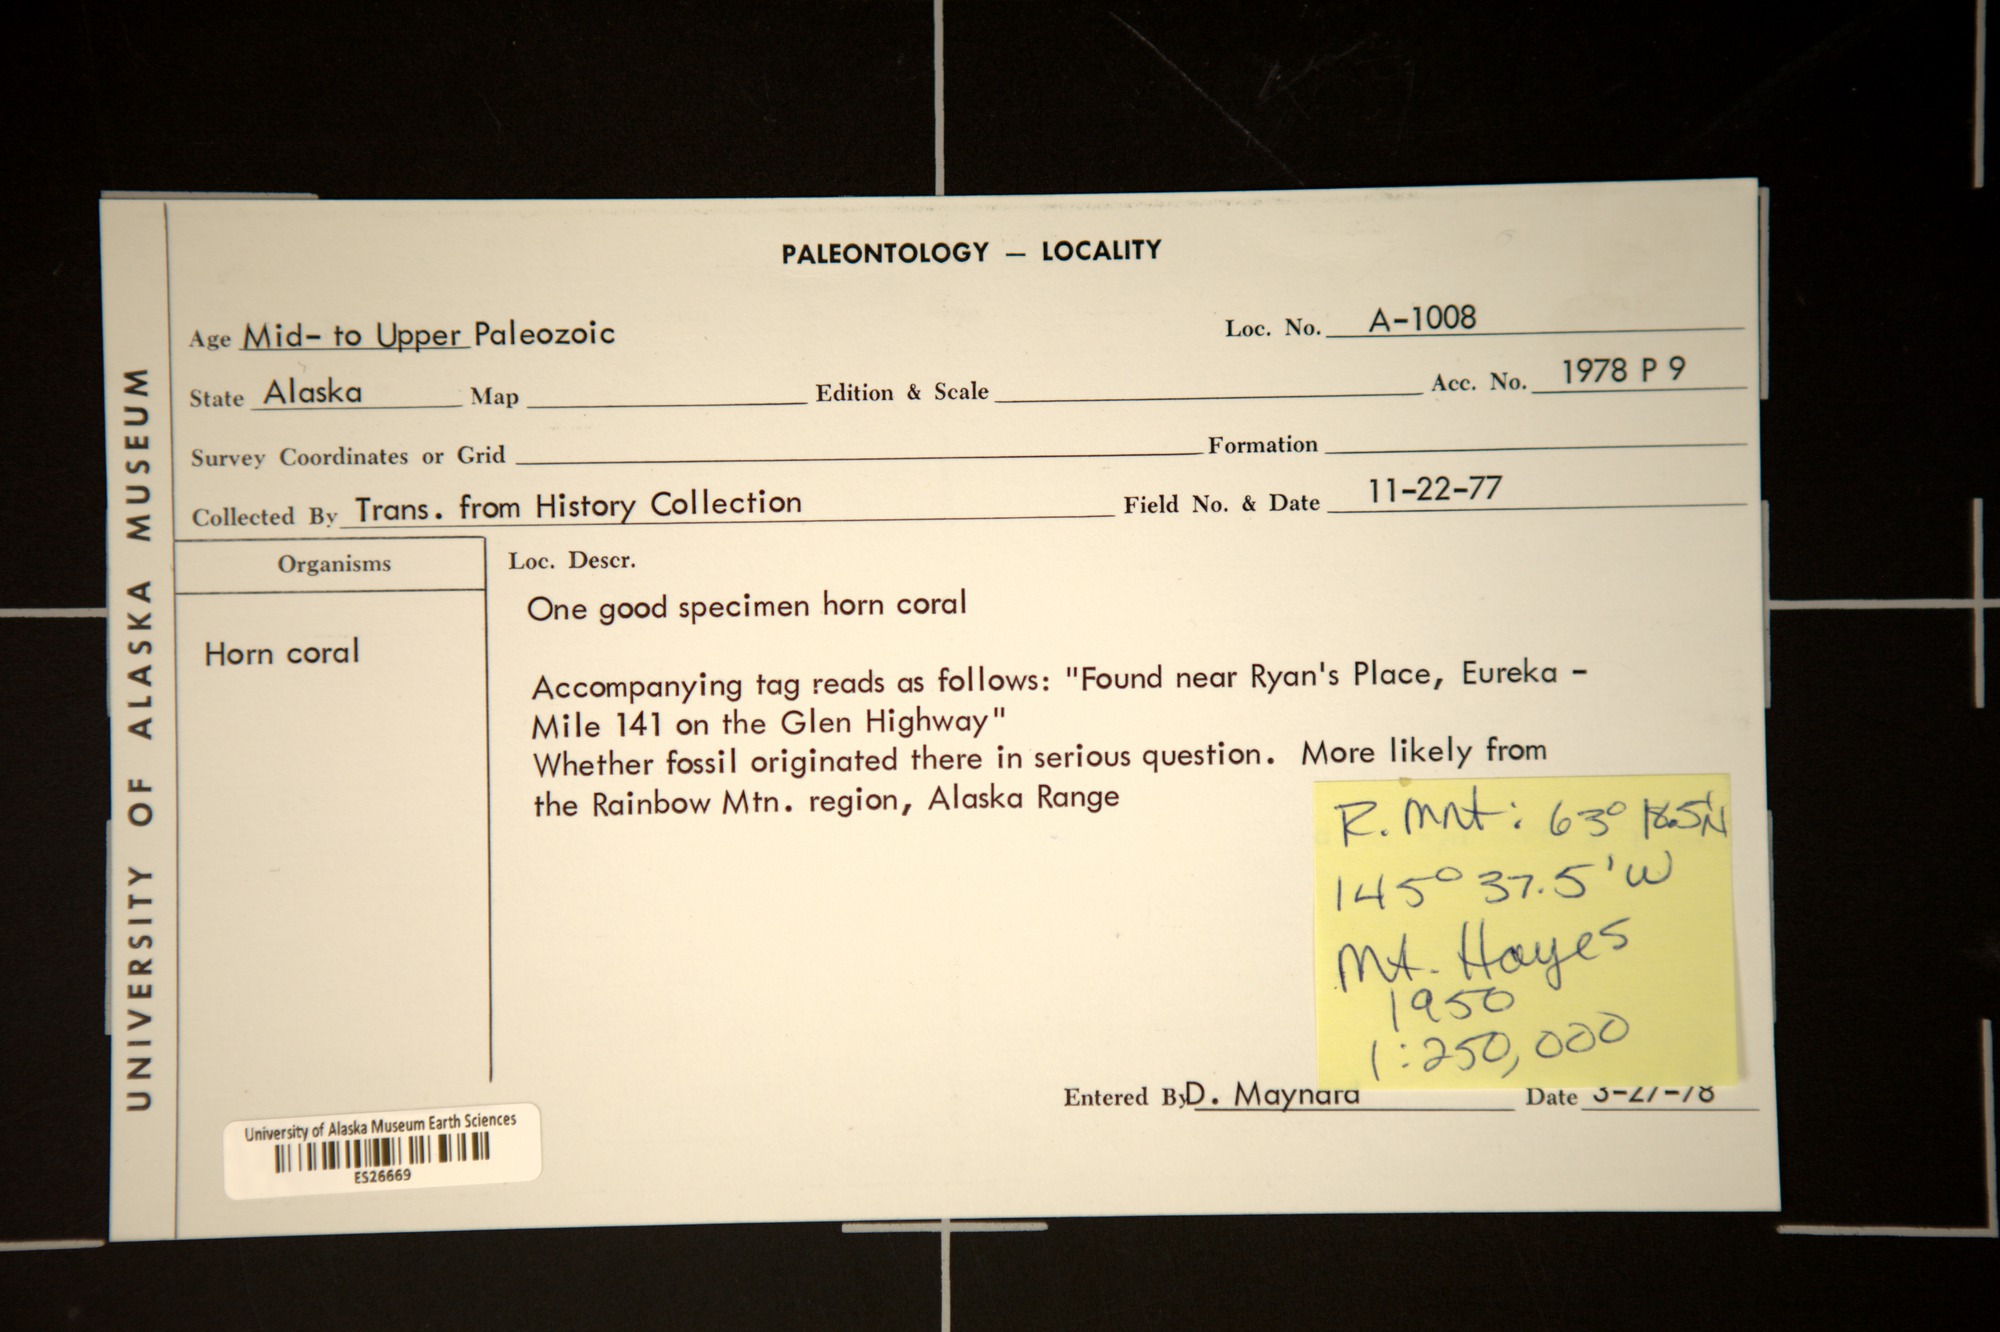 PALEONTOLOGY — LOCALITY
Age Mid- to Upper Paleozoic Loc. No. A-1008
State Alaska Map Edition & Scale Acc. No. 1978 P 9
Survey Coordinates or Grid Formation
Collected By Trans. from History Collection Field No. & Date 11-22-77
Organisms
Horn coral
Loc. Descr.
One good specimen horn coral
Accompanying tag reads as follows: "Found near Ryan's Place, Eureka -
Mile 141 on the Glen Highway"
Whether fossil originated there in serious question. More likely from
the Rainbow Mtn. region, Alaska Range
R. Mnt: 63° 18.5'N
145° 37.5'W
Mt. Hayes
1950
1:250,000
Entered By D. Maynard Date 3-27-78
UNIVERSITY OF ALASKA MUSEUM
University of Alaska Museum Earth Sciences
ES26669